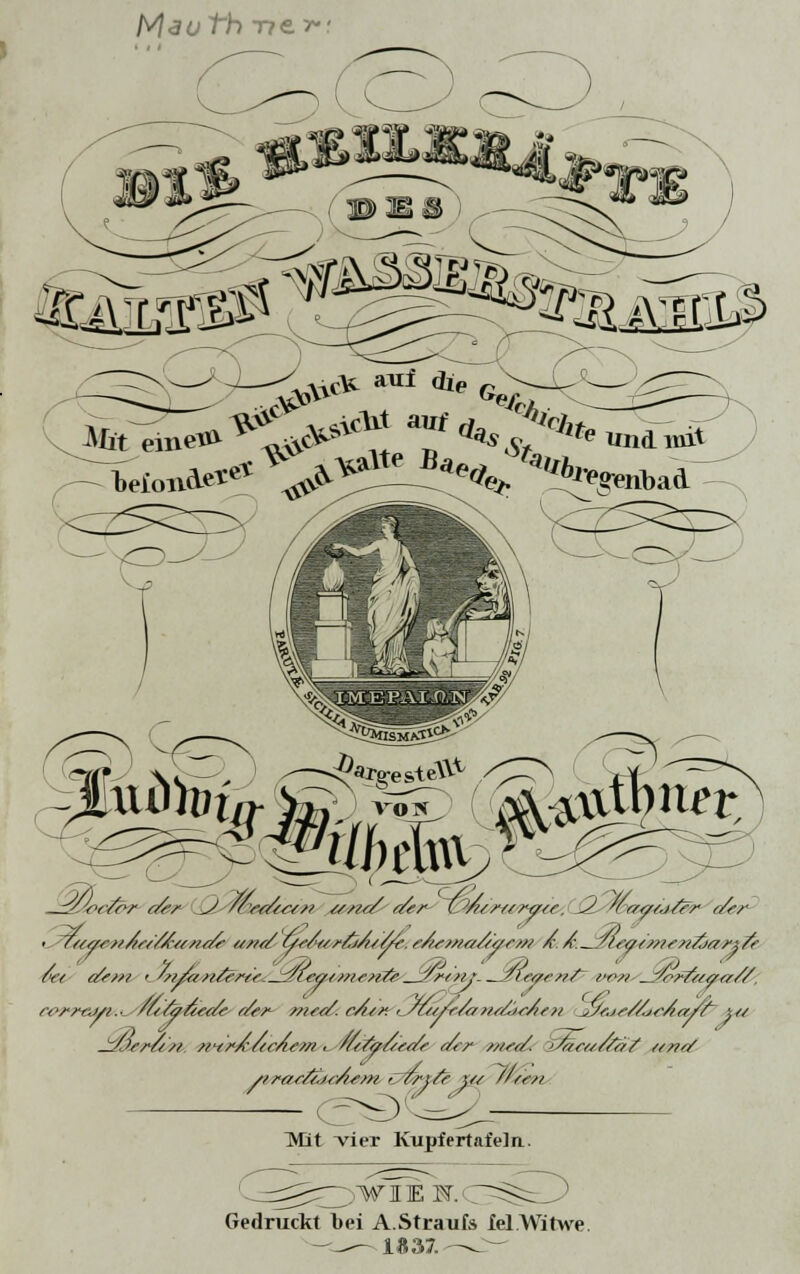 Mauthner
DIE HEILKRÄFTE
DES
KALTEN WASSERSTRAHLS
Mit einem Rückblick auf die Geschichte und mit
besonderer Rücksicht auf das Staubregenbad
und kalte Baeder
PARUTÆ SICILIA NUMISMATICA 1723 TAB. 92 FIG. 7
IMEPAIΩN
Dargestellt
VON
Ludwig Wilhelm Mauthner,
Doctor der Medicin und der Chirurgie, Magister der
Augenheilkunde und Geburtshilfe, ehemaligem k. k. Regimentsarzte
bei dem Infanterie-Regimente Prinz-Regent von Portugall,
corresp. Mitgliede der med. chir. Hufelandschen Gesellschaft zu
Berlin, wirklichem Mitgliede der med. Facultät und
practischem Arzte zu Wien
Mit vier Kupfertafeln.
WIEN.
Gedruckt bei A. Straufs sel. Witwe.
1837.